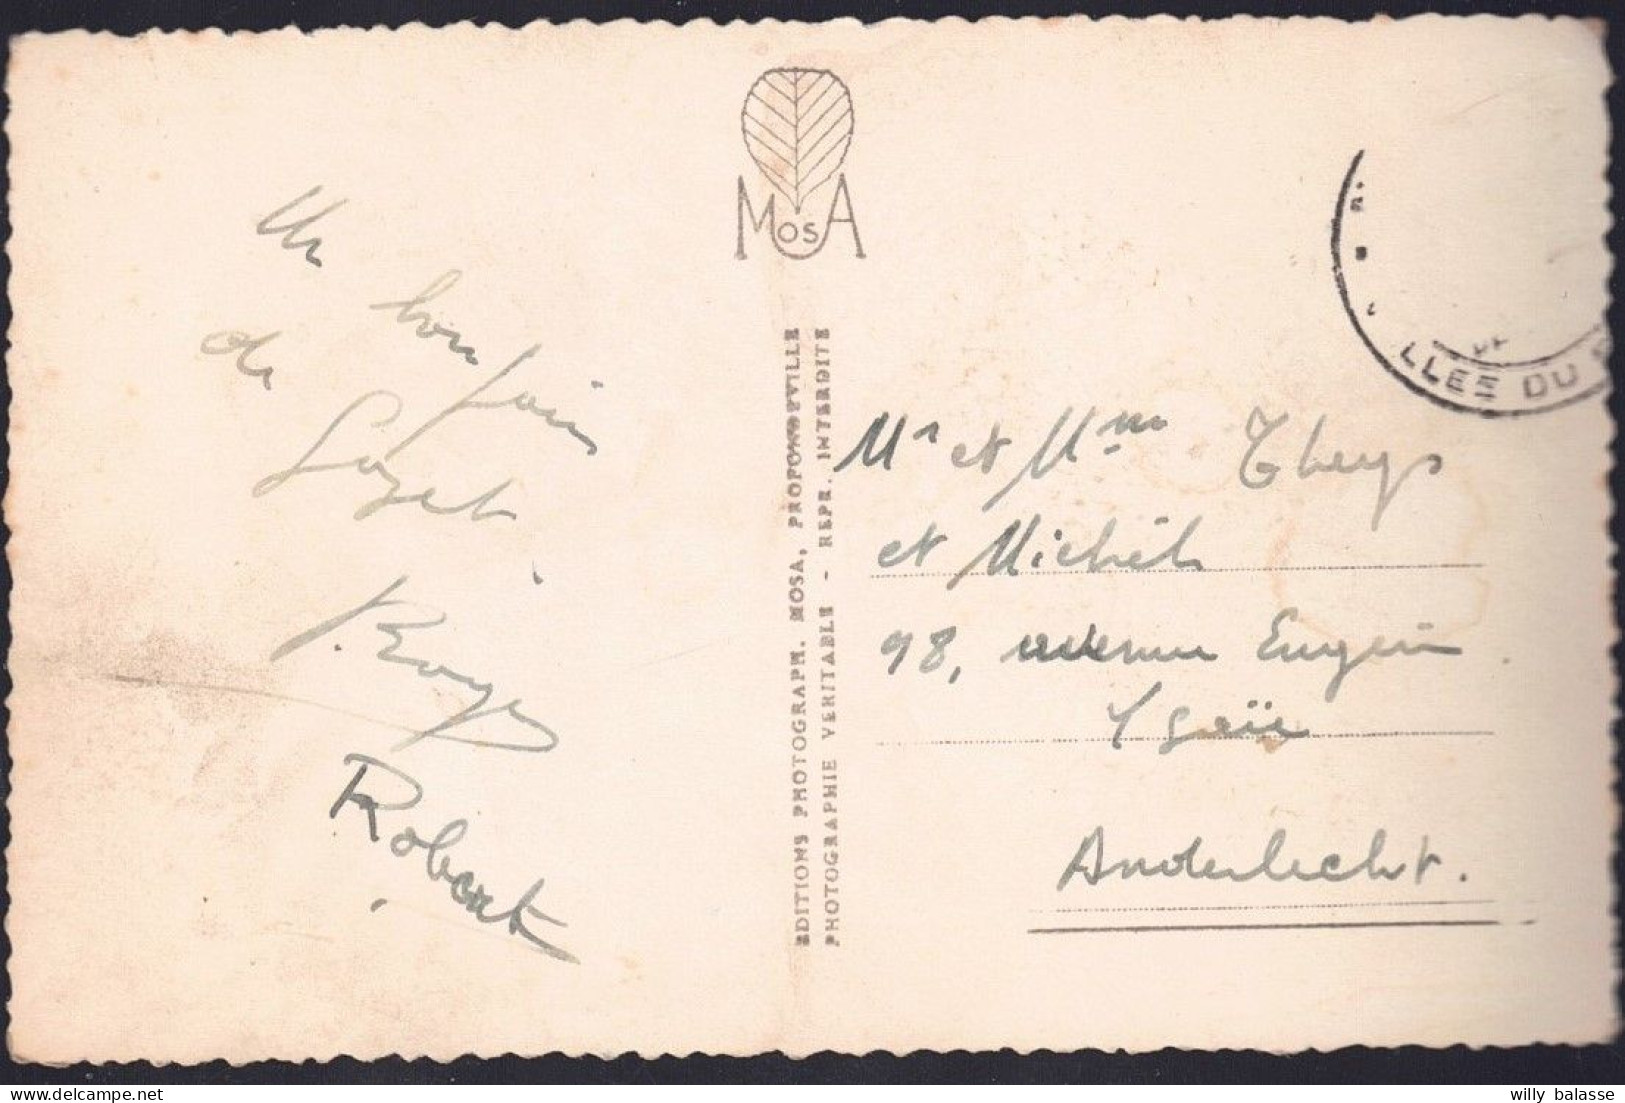 Un bonjour
de
Gozet.
Roger
Robert
MOSA
EDITIONS PHOTOGRAPH. MOSA, PROFONDEVILLE
PHOTOGRAPHIE VERITABLE - REPR. INTERDITE
LLES DU
Mr et Mme Theys
et Michel
98, avenue Eugène
Ysaïe
Anderlecht.
willy balasse